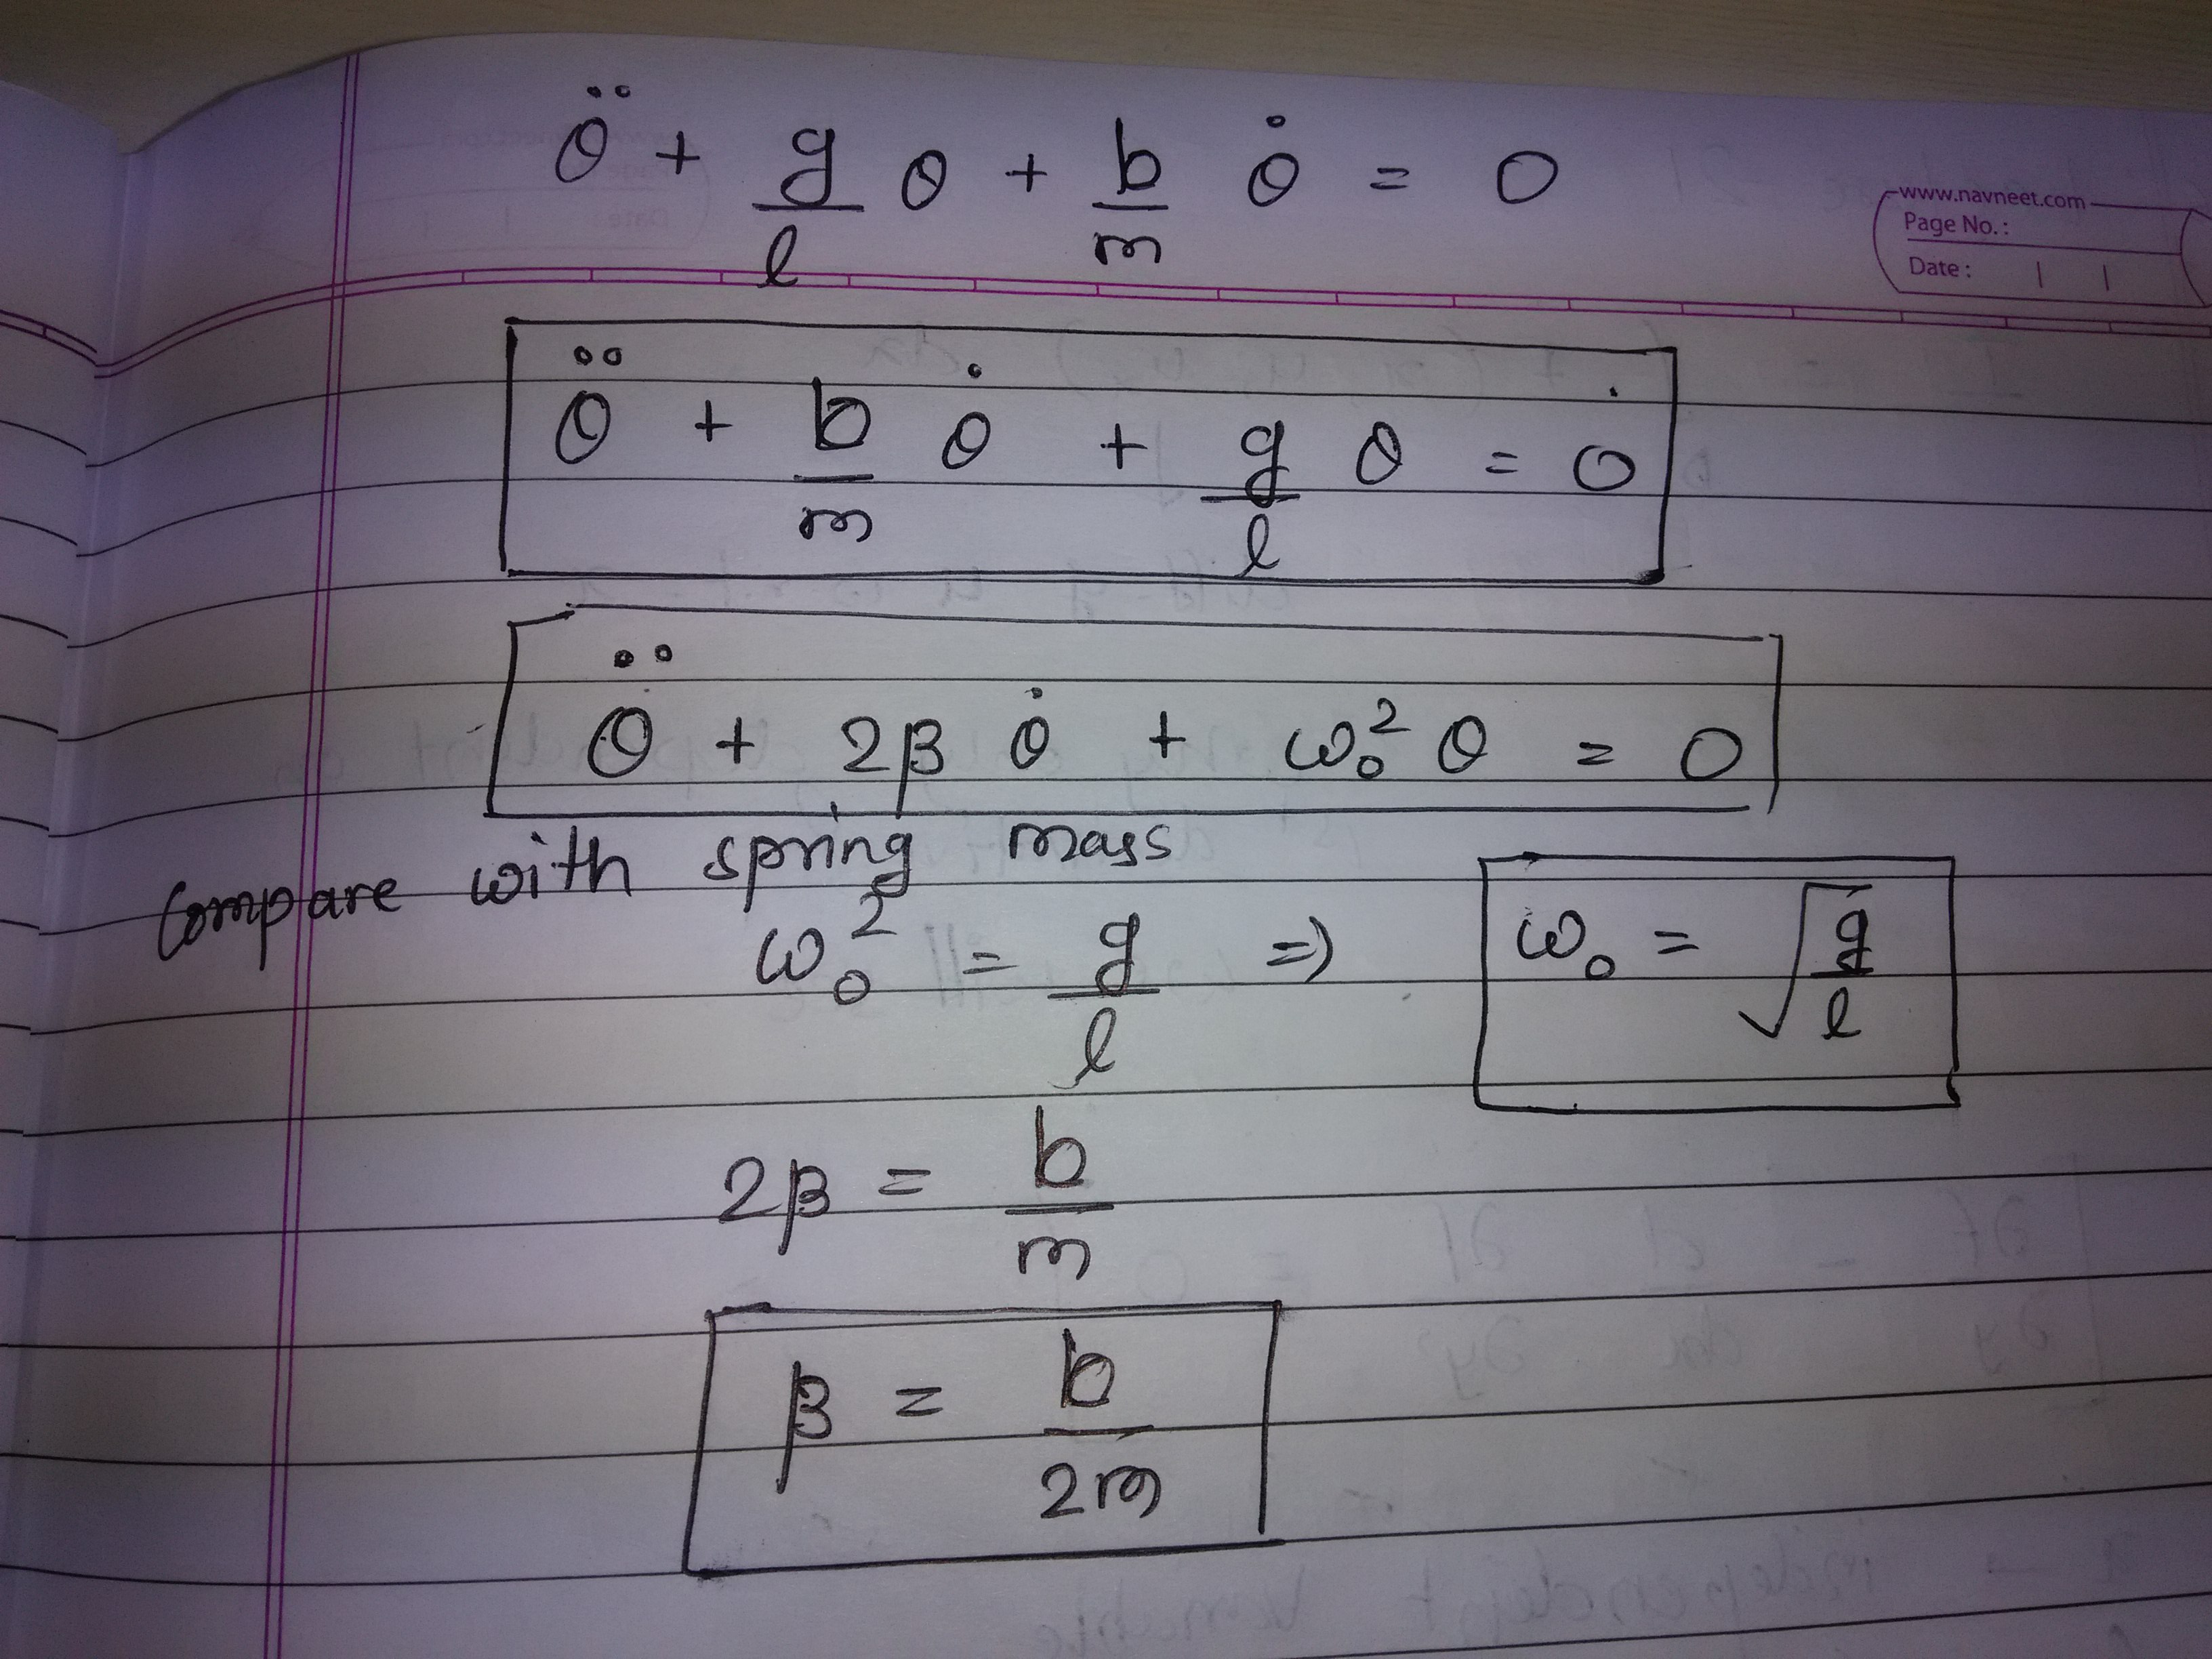 θ̈ + g/l θ + b/m θ̇ = 0
www.navneet.com
Page No.:
Date: | |
θ̈ + b/m θ̇ + g/l θ = 0
θ̈ + 2β θ̇ + ω₀² θ = 0
Compare with spring mass
ω₀² = g/l ⇒ ω₀ = √(g/l)
2β = b/m
β = b/2m